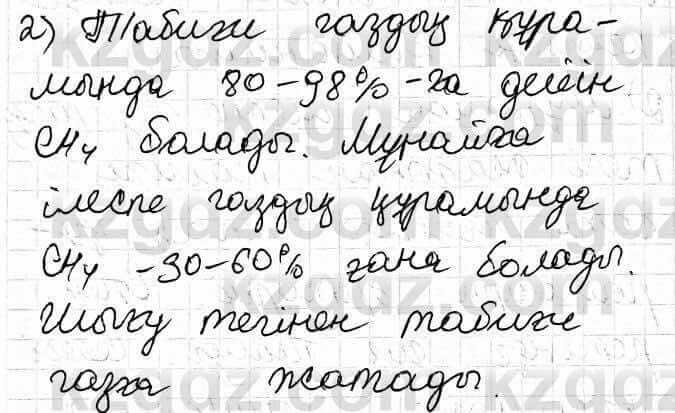 2) Табиғи газдың құра-
мында 80-98%-ға дейін
CH4 болады. Мұнайға
ілеспе газдың құрамында
CH4 -30-60% ғана болады.
Шығу тегінен табиғи
газға жатады.
kzgdz.com